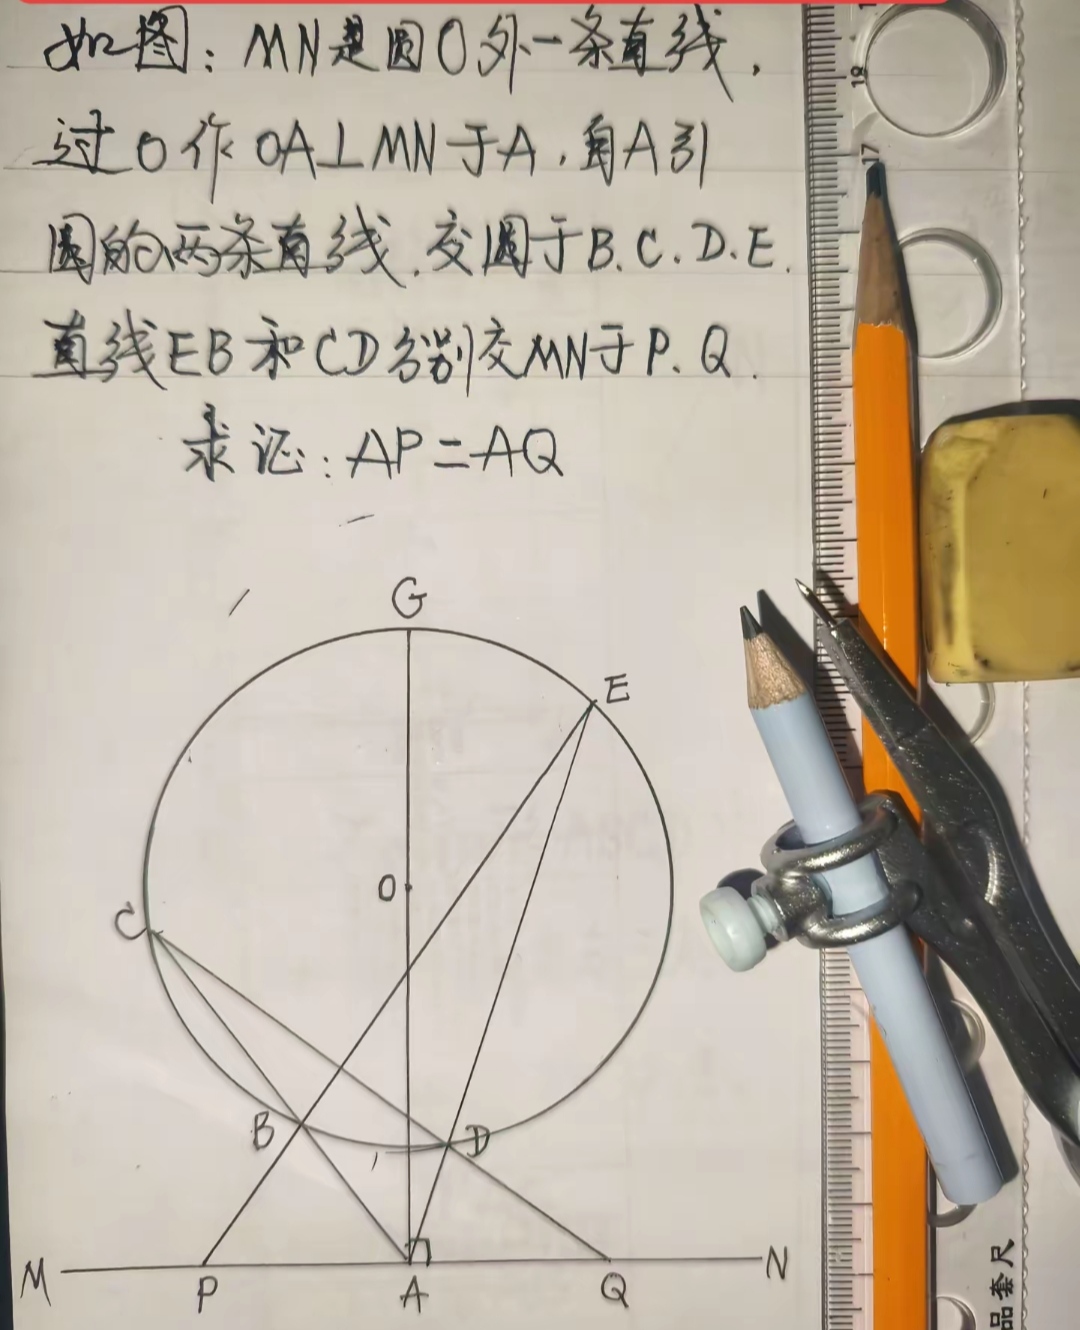 如图：MN是圆O外一条直线，
过O作OA⊥MN于A，自A引
圆的两条直线，交圆于B.C.D.E.
直线EB和CD分别交MN于P.Q.
求证：AP=AQ
G
E
O
C
B
D
M
P
A
Q
N
18
17
品套尺